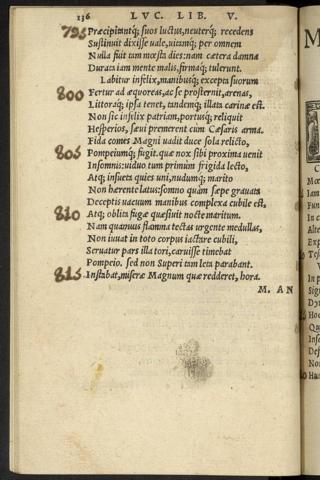 136 LVC. LIB. V.
795 Præcipitãtq; suos luctus, neuterq; recedens
Sustinuit dixisse uale, uitamq; per omnem
Nulla fuit tam mœsta dies: nam cætera damna
Durata iam mente malis, firmaq; tulerunt.
Labitur infelix, manibusq; excepta suorum
800 Fertur ad æquoreas, ac se prosternit, arenas,
Littoraq; ipsa tenet, tandemq; illata carinæ est.
Non sic infelix patriam, portusq; reliquit
Hesperios, sæui premerent cùm Cæsaris arma.
Fida comes Magni uadit duce sola relicto,
805 Pompeiumq; fugit. quæ nox sibi proxima uenit
Insomnis: uiduo tum primùm frigida lecto,
Atq; insueta quies uni, nudumq; marito
Non hærente latus: somno quàm sæpe grauata
Deceptis uacuum manibus complexa cubile est,
810 Atq; oblita fugæ quæsiuit nocte maritum.
Nam quamuis flamma tectas urgente medullas,
Non iuuat in toto corpus iactare cubili,
Seruatur pars illa tori, caruisse timebat
Pompeio. sed non Superi tam leta parabant.
815 Instabat, miseræ Magnum quæ redderet, hora.
M. AN